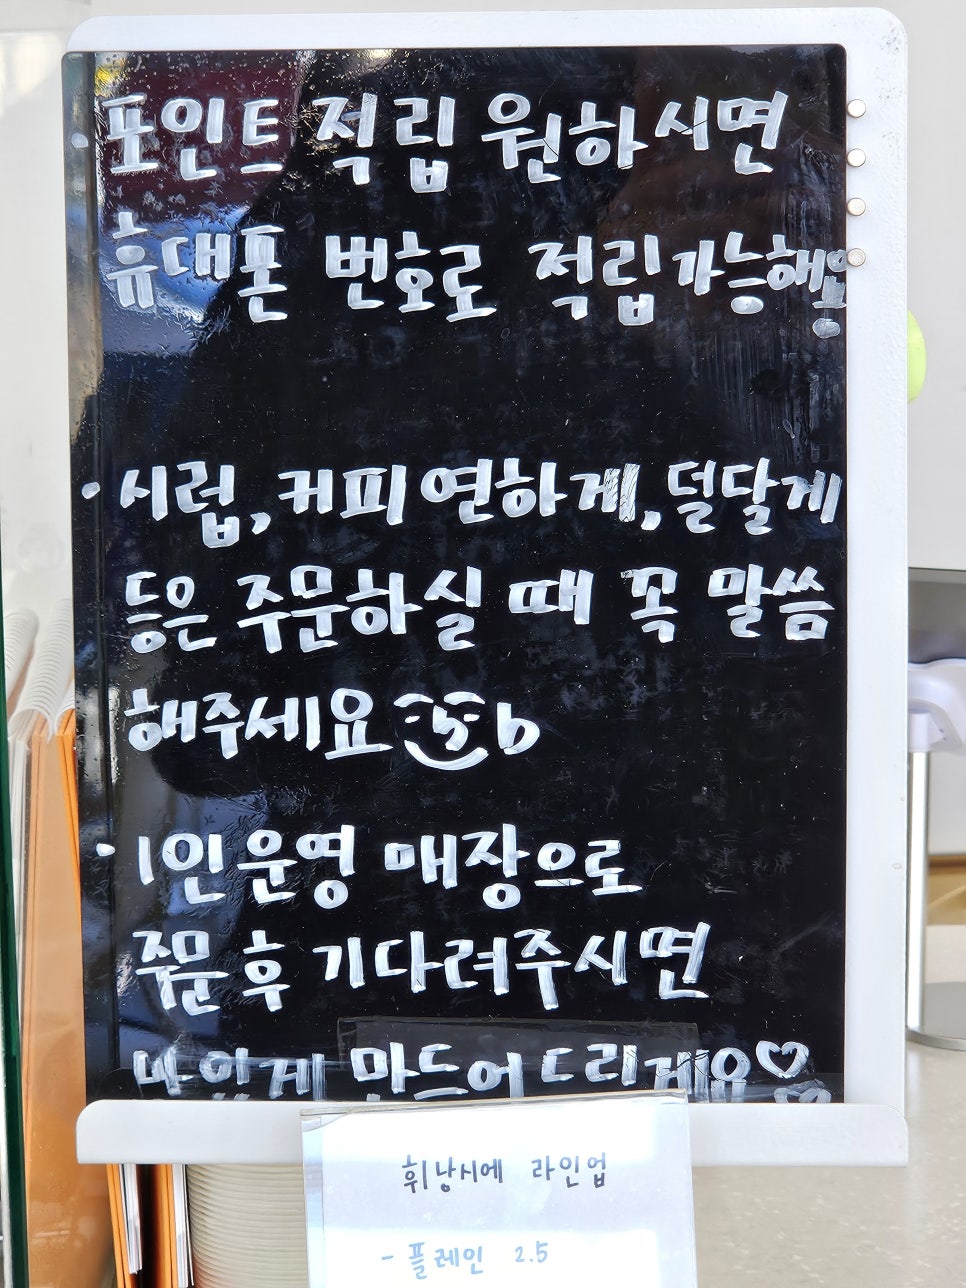 포인트 적립 원하시면
휴대폰 번호로 적립가능해요
· 시럽, 커피 연하게, 덜달게
등은 주문하실 때 꼭 말씀
해주세요
· 1인 운영 매장으로
주문 후 기다려주시면
맛있게 만드어드리게요♡
휘낭시에 라인업
- 플레인 2.5